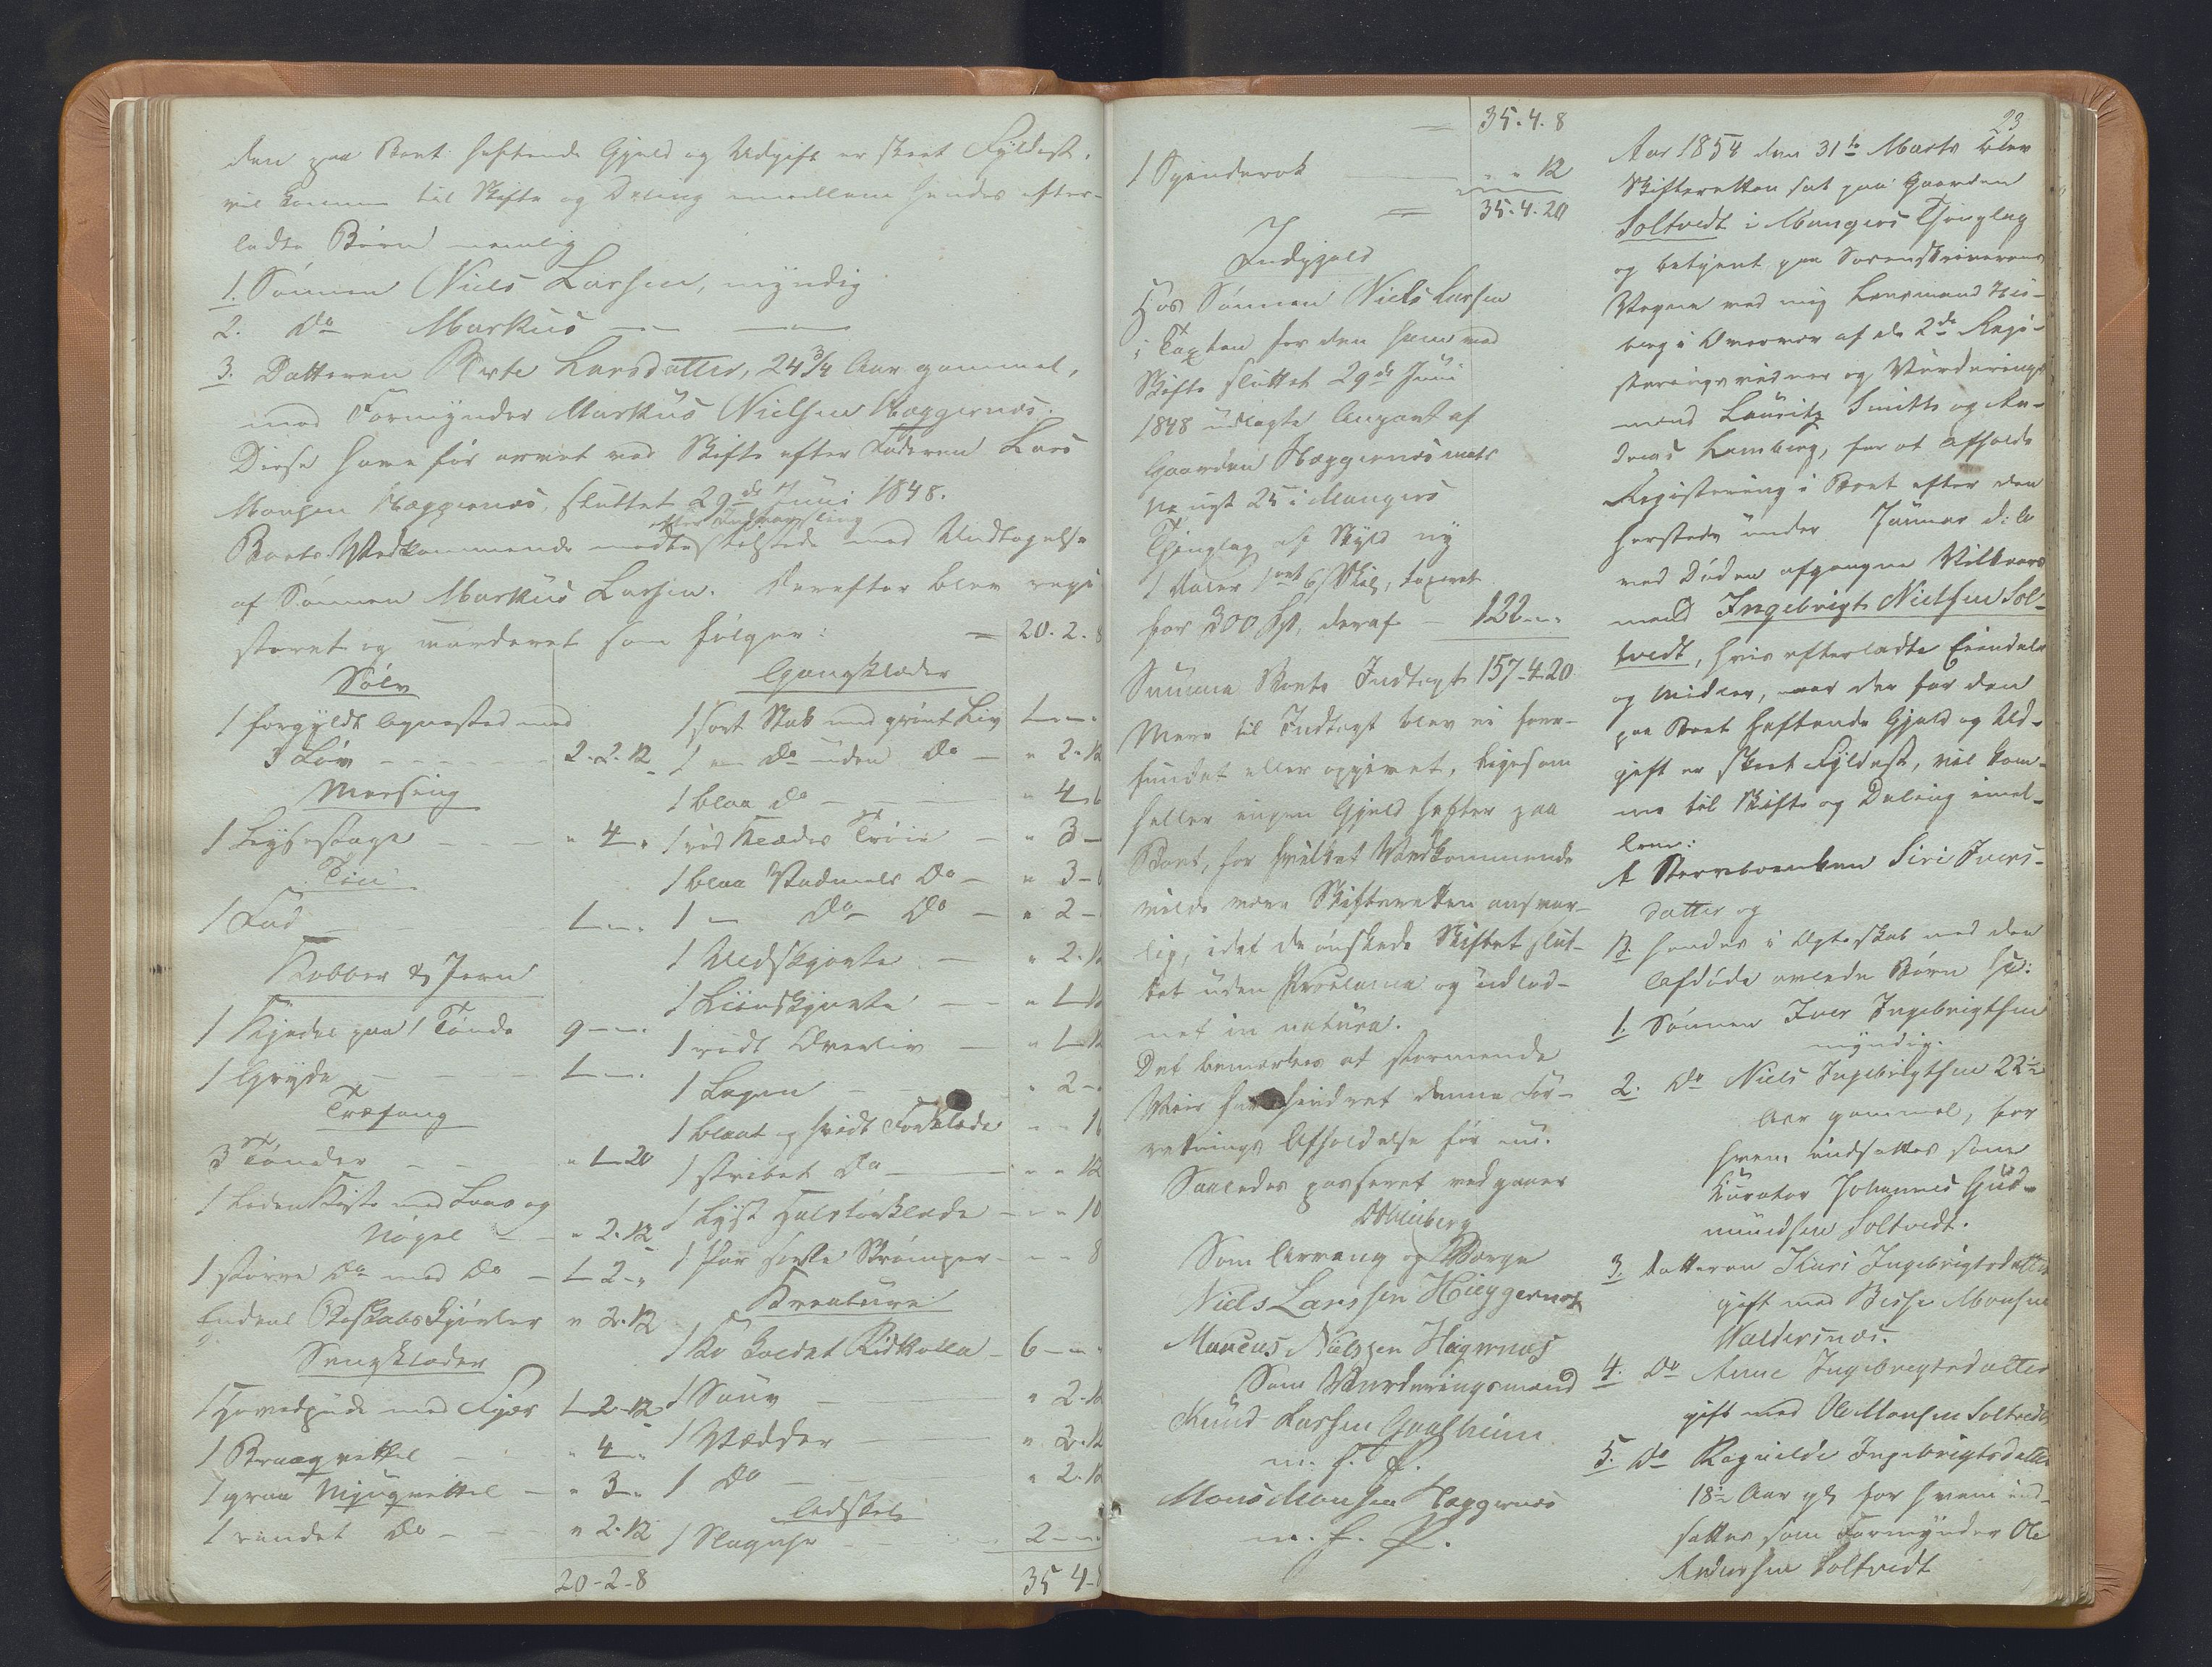 den paa Boet heftende Gjæld og Udgift er skeet Fyldest,
vil komme til Skifte og Deling imellem hendes efter-
ladte Børn nemlig
1. Sønnen Niels Larsen, myndig
2. Do Markus — —
3. Datteren Berte Larsdatter, 24 3/4 Aar gammel,
med Formynder Markus Nielsen Hæggernæs.
Disse have før arvet ved Skifte efter Faderen Lars
Monsen Hæggernæs, sluttet 29de Juni 1848.
efter Indvarsling
Boets Vedkommende mødte tilstede med Undtagelse
af Sønnen Markus Larsen. Derefter blev regi-
streret og vurderet som følger:
Sølv
1 forgyldt Agnested med
3 Løv - - - 2-2-12
Messing
1 Lysestage - - - " 4 - "
Tin
1 Fad 1 - - "
Kobber & Jern
1 Kjedel paa 1 Tønde 9 - - "
1 Gryde 1 - - "
Træfang
3 Tønder - - " 1-20
1 liden Kiste med Laas og
Nøgel - - " 2-12
1 større Do med Do - 1-2-"
Endeel Boskabskjørler " 2-12
Sengklæder
1 Hovedpude med Fjær 1-2-12
1 Braagvettel - " 4 - "
1 graa Mjugvettel - " 3 - "
1 randet Do - - " 2-12
20-2-8
= 20. 2. 8
Gangklæder
1 sort Stak med grønt Liv 1 - - "
1 - Do uden Do - " 2-12
1 blaa Do - " 4-
1 rød Klædes Trøie - " 3 -
1 blaa Vadmels Do - " 3 -
1 - Do Do - " 2 -
1 Uldskjorte - " 2-12
1 Liinskjorte - - " 1-
1 rødt Overliv - " 1-12
1 Lagen - " 2 -
1 blaat og hvidt Forklæde " "
1 stribet Do - " " 12
1 lyst Halstørklæde - " " 10
1 Par sorte Strømper - " " 8
Kreature
1 Ko kaldet Ridkolla - 6 - - "
1 Sauv - " 2-12
1 Vædder - " 2-12
1 Do - " 2-12
Ildsted
1 Slaguhr - - 2 - - "
35 4-8
= 35. 4. 8
1 Spinderok " " 12
= 35. 4. 20
Indgjæld
Hos Sønnen Niels Larsen
i Taxten for den ham ved
Skifte sluttet 29de Juni
1848 udlagte Anpart af
Gaarden Hæggernæs matr
No nyt 25 i Mangers
Thinglag af Skyld ny
1 Daler 1 ort 6 Skil, taxeret
for 200 Spd. deraf - 122 - - "
Summa Boets Indtægt 157-4-20
Mere til Indtægt blev ei fore-
fundet eller opgivet, ligesom
heller ingen Gjæld hefter paa
Boet, for hvilket Vedkommende
vilde være Skifteretten ansvar-
lig, idet de ønskede Skiftet slut-
tet uden Proclama og udlod-
net in natura.
Det bemærkes at stormende
Veir har hindret denne For-
retnings Afholdelse før nu.
Saaledes passeret vedgaaer
Som Arving og Værge
Niels Larssen Hieggernæs
Marcus Nielssen Hægernæs
Som Vurderingsmænd
Knud Larsen Gaasheim
m. f. P.
Mons Monsen Hæggernæs
m. f. P.
23
Aar 1854 den 31te Marts blev
Skifteretten sat paa Gaarden
Soltvedt i Mangers Thinglag
og betjent paa Sorenskriverens
Vegne ved mig Lensmand His-
berg i Overvær af de 2de Regi-
streringsvidner og Vurderings-
mænd Lauritz Smitth og An-
dreas Lemberg, for at afholde
Registrering i Boet efter den
hersteds under Januar d: A
ved Døden afgangne Vilkaars-
mand Ingebrigt Nielsen Sol-
tvedt, hvis efterladte Eiendele
og Midler, naar der for den
paa Boet heftende Gjæld og Ud-
gift er skeet Fyldest, vil kom-
me til Skifte og Deling imel-
lem:
A Stervboenken Siri Ivers-
datter og
B. hendes i Ægteskab med den
Afdøde avlede Børn
1. Sønnen Iver Ingebrigtsen
myndig.
2. Do Niels Ingebrigtsen 22 1/2
Aar gammel, for
hvem indsættes som
Kurator Johannes Gud-
mundsen Soltvedt.
3. Datteren Kari Ingebrigtsdatter
gift med Børse Monsen
Waldersnæs.
4. Do Anne Ingebrigtsdatter
gift med Ole Monsen Soltvedt
5. Do Ragnilde Ingebrigtsdatter
18 1/2 Aar gl, for hvem ind-
sættes som Formynder Ole
Andersen Soltvedt